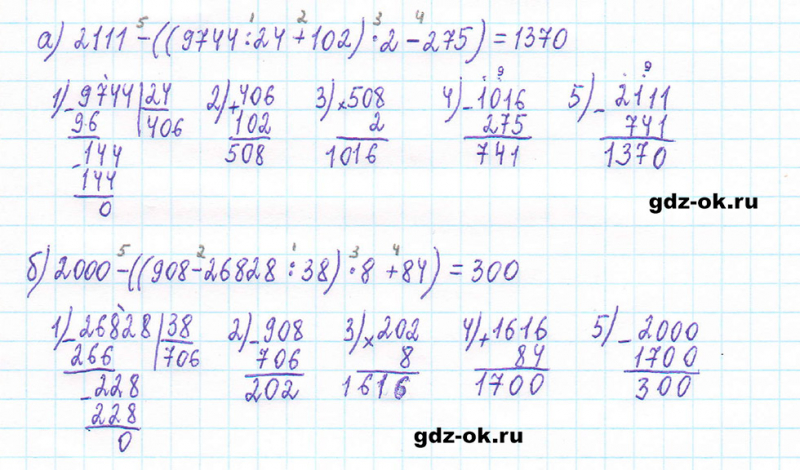 5 1 2 3 4
а) 2111 - ((9744 : 24 + 102) · 2 - 275) = 1370
9 9
1) - 9744 | 24 2) + 406 3) × 508 4) - 1016 5) - 2111
96 406 102 2 275 741
- 144 508 1016 741 1370
144
0
gdz-ok.ru
5 2 1 3 4
б) 2000 - ((908 - 26828 : 38) · 8 + 84) = 300
1) - 26828 | 38 2) - 908 3) × 202 4) + 1616 5) - 2000
266 706 706 8 84 1700
- 228 202 1616 1700 300
228
0
gdz-ok.ru